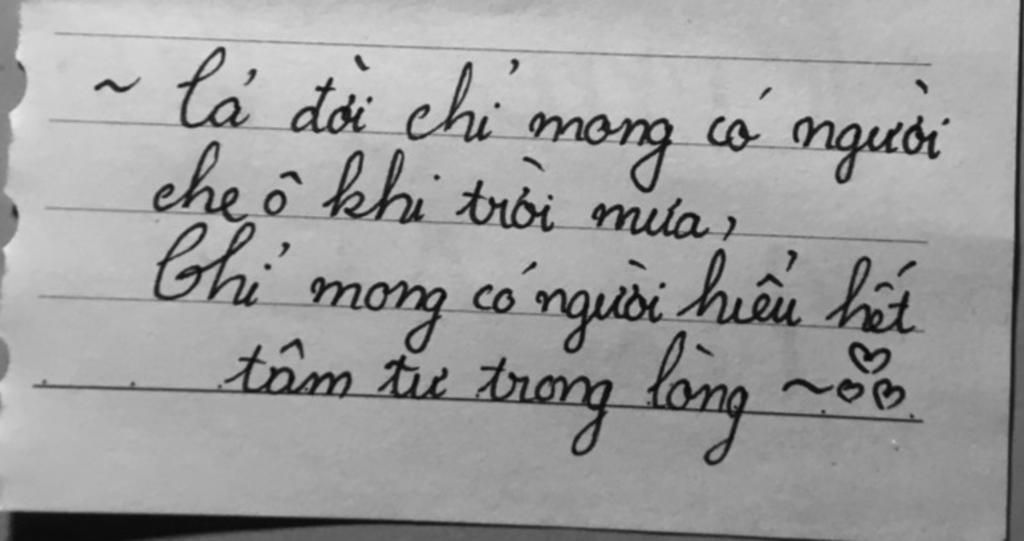 ~ Cả đời chỉ mong có người
che ô khi trời mưa,
Chỉ mong có người hiểu hết
tâm tư trong lòng ~♡♡♡